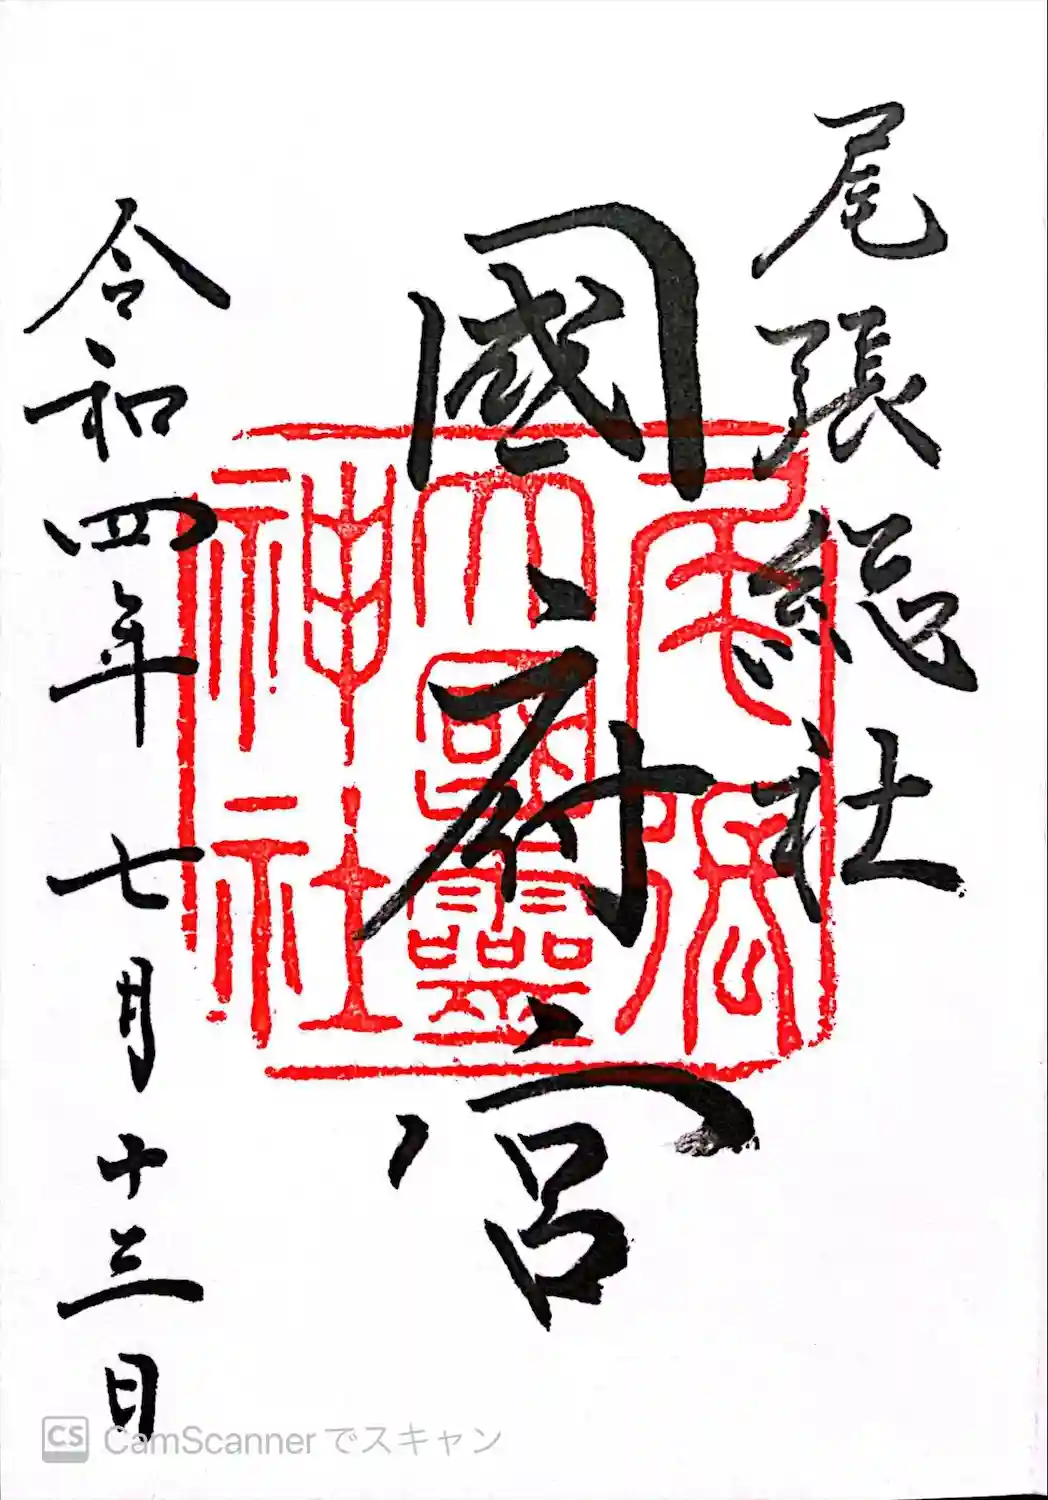 尾張総社
國府宮
尾張
大國霊
神社
令和四年七月十三日
CS CamScannerでスキャン